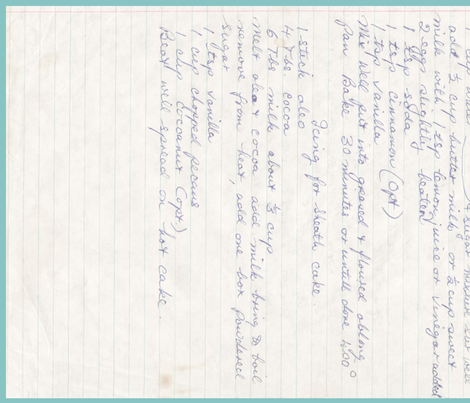 sugar mixture stir well
add ½ cup butter milk or ½ cup sweet
milk with 1 tsp lemon juice or vinigar added
2 eggs slightly beaten
1 tsp soda
1 tsp cinnamon (opt)
1 tsp vanilla
Mix well put into greased & floured oblong
pan Bake 30 minutes or untill done 400°
Icing for Sheath cake.
1-stick oleo
4 Tbs cocoa
6 Tbs milk about ⅓ cup
Melt oleo & cocoa add milk bring to boil
remove from heat, add one box powdered
sugar
1 tsp vanilla
1 cup chopped pecans
1 cup coconut (opt)
Beat well spread on hot cake.